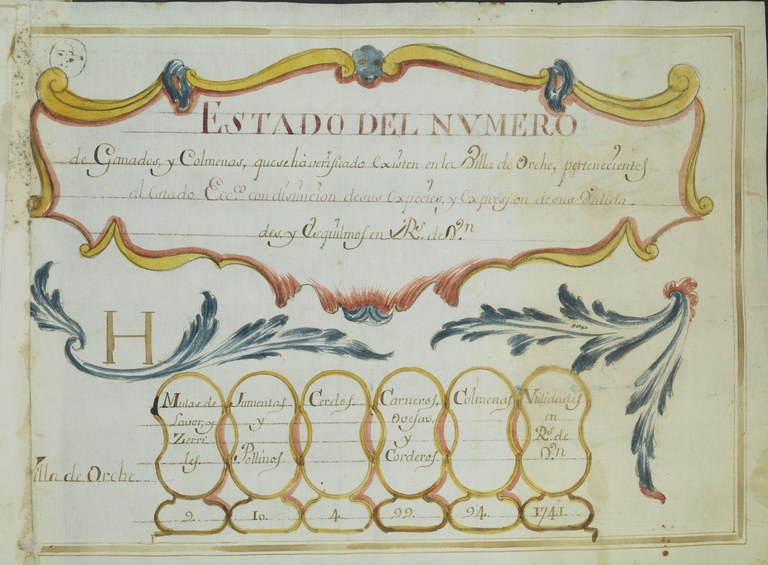 ESTADO DEL NVMERO
de Ganados, y Colmenas, que se ha verificado existen en la Villa de Orche, pertenecientes
al Estado Ecc.co con distincion de sus especies, y expression de sus Vtilida
des, y Esquilmos en Rs. de Vn
H
Mulas de Lavor, y Zerriles.
Jumentas y Pollinos.
Cerdos.
Carneros, Ovejas, y Corderos.
Colmenas
Vtilidades en Rs. de Vn
Villa de Orche.
2.
10.
4.
22.
24.
1741.